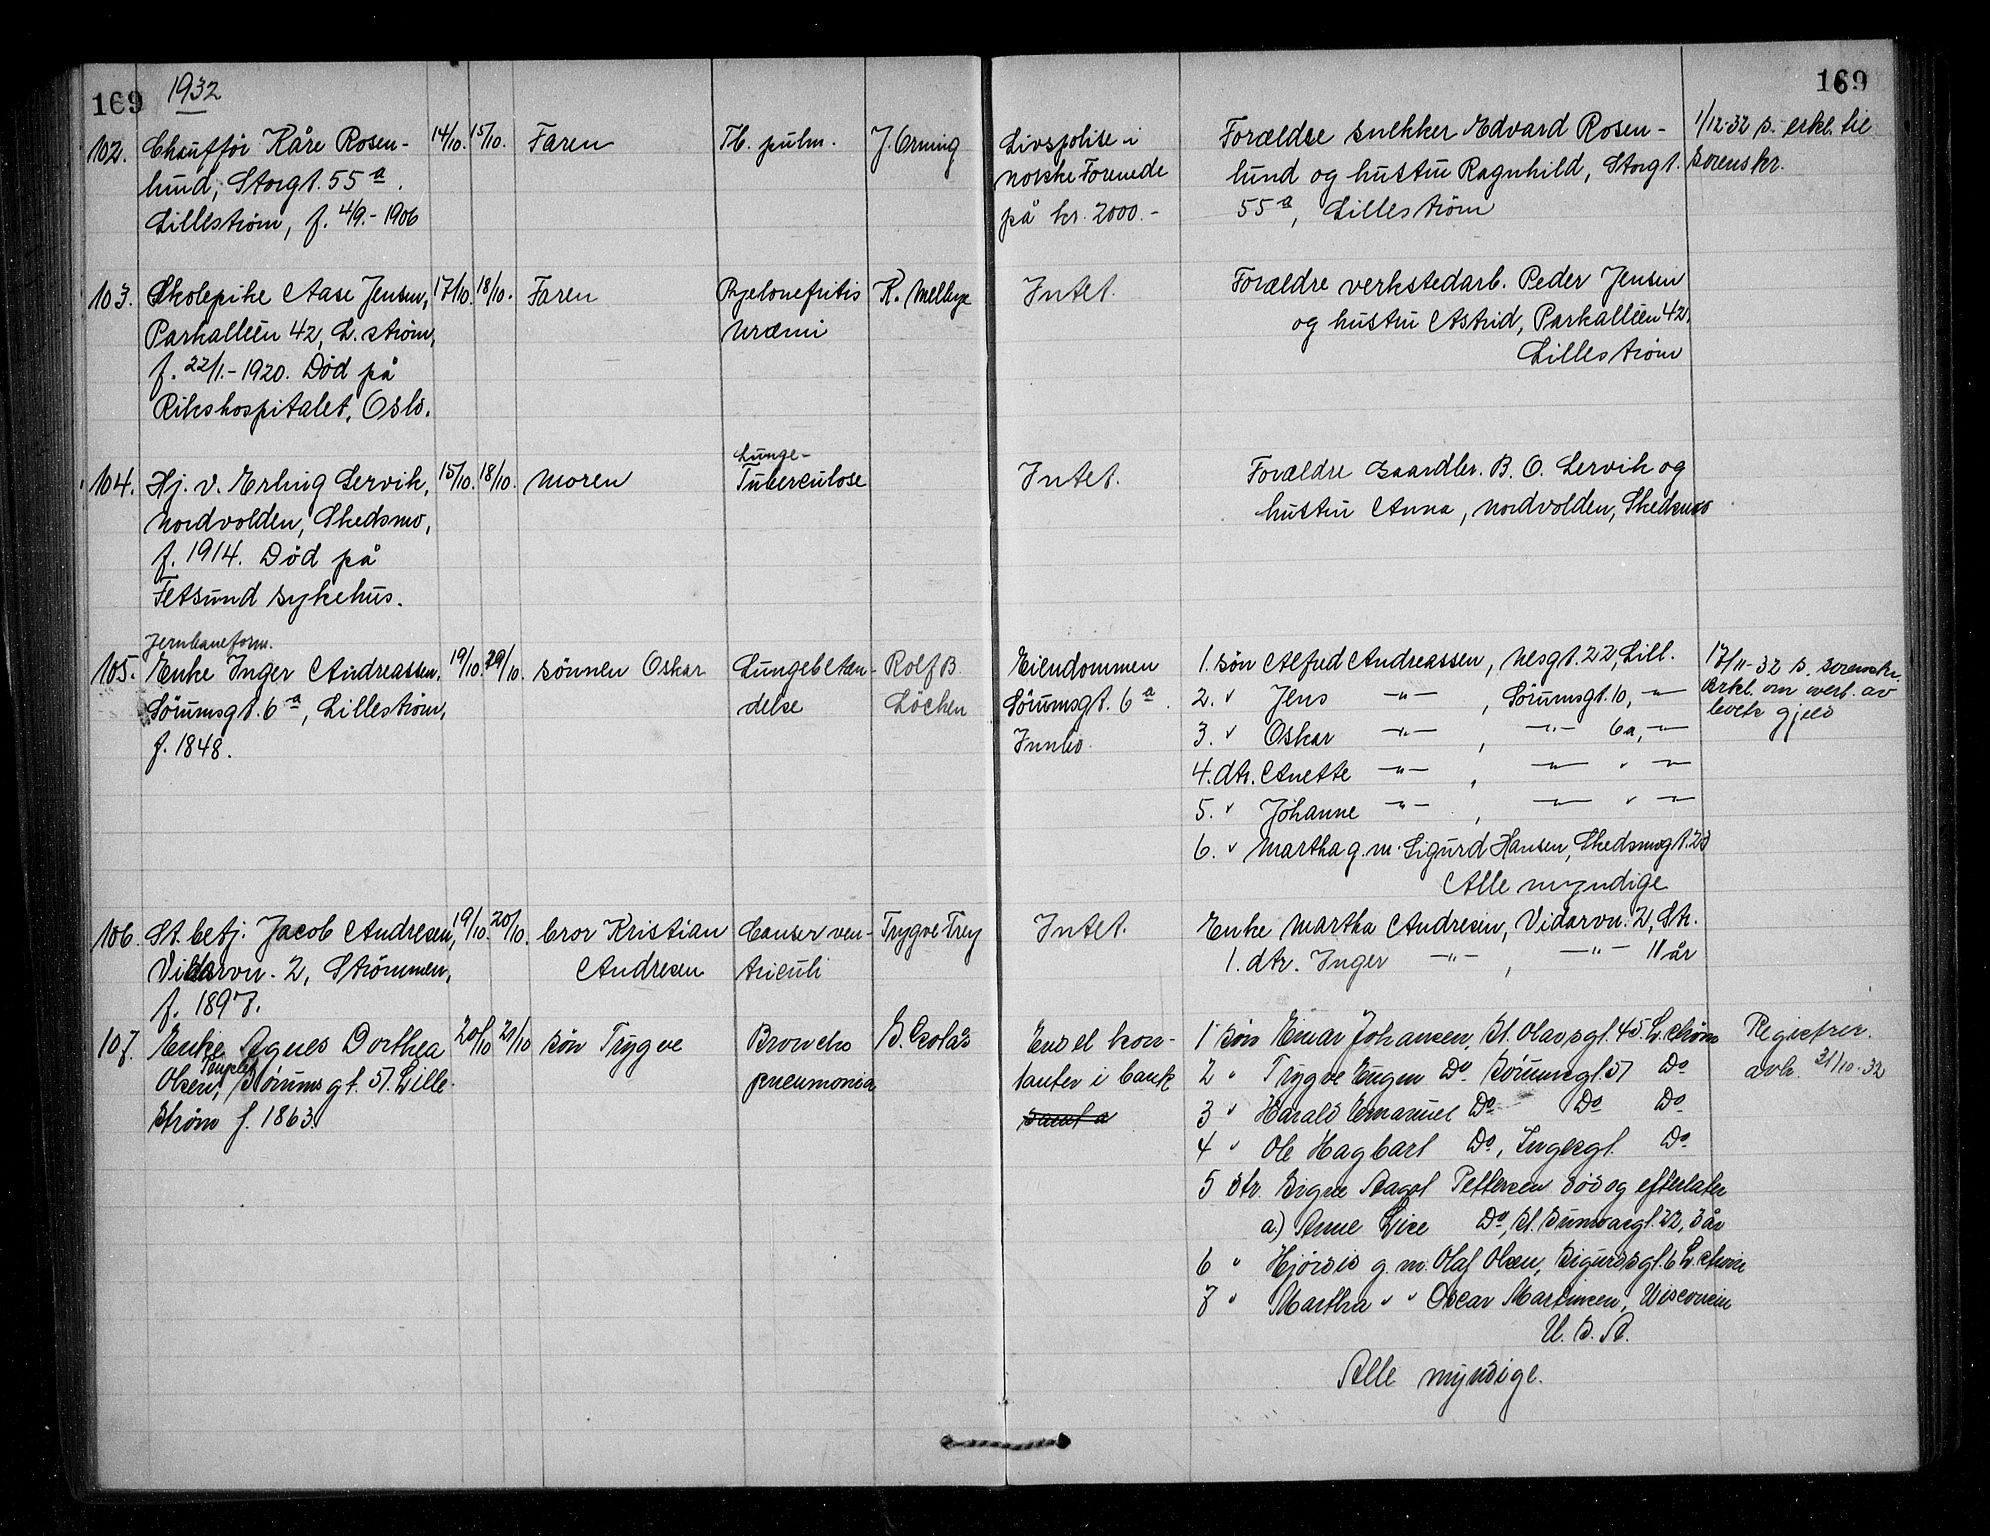 169 1932 169
102. Chauffør Kåre Rosen- 14/10. 15/10. Faren Tb. pulm. J. Orning Livspolise i Forældre snekker Edvard Rosen- 1/12-32 s. erkl. til
lund, Storgt. 55 a. norske Forenede lund og hustru Ragnhild, Storgt. sorenskr.
Lillestrøm, f. 4/9.-1906 på kr. 2000.- 55 a, Lillestrøm
103. Skolepike Aase Jensen, 17/10. 18/10. Faren Pyelonefritis K. Mellbye Intet. Forældre verkstedarb. Peder Jensen
Parkalléen 42, L. strøm, uræmi og hustru Astrid, Parkalléen 42.
f. 22/1.-1920. Død på Lillestrøm
Rikshospitalet, Oslo.
Lunge-
104. Hj. v. Erling Lervik, 15/10. 18/10. moren Tuberculose Intet. Forældre Gaardbr. B. O. Lervik og
Nordvolden, Skedsmo, hustru Anna, Nordvolden, Skedsmo
f. 1914. Død på
Fetsund sykehus.
Jernbaneform.
105. Enke Inger Andreassen, 19/10. 29/10. sønnen Oskar Lungebeten- Rolf B. Eiendommen 1. søn Alfred Andreassen, Nesgt. 22, Lill. 17/11-32 s. sorenskr.
Sørumsgt. 6 a, Lillestrøm, delse Löchen Sørumsgt. 6 a. 2. " Jens —"— , Sørumsgt. 10, —"— erkl. om overt. av
f. 1848. Innbo. 3. " Oskar —"— , —"— 6a, —"— boets gjeld
4. dtr. Anette —"— , —"— " —"—
5. " Johanne —"— , —"— " —"—
6. " Martha g. m. Sigurd Hansen, Skedsmogt. 23
Alle myndige
106. St. betj. Jacob Andresen, 19/10. 20/10. bror Kristian Canser ven- Trygve Frey Intet. Enke Martha Andresen, Vidarvn. 2, Str.
Vidarvn. 2, Strømmen, Andresen triculi 1. dtr. Inger —"— , —"— 11 år
f. 1897.
107. Enke Agnes Dorthea 20/10 21/10 søn Trygve Broncho En del kon- 1 søn Einar Johansen, St. Olavsgt. 45. L. strøm Registrer.
Olsen, Sørumsgt. 57. Lille- pneumonia tanter i bank 2 " Trygve Eugen Do Sørumsgt. 57 Do avh. 31/10-32
strøm f. 1863. samt a 3 " Harald Emanuel Do Do Do
4 " Ole Hagbart Do, Do
5 dtr. Signe Pettersen død og efterlater
a.) Anne Lise Do, 22, 3 år
6 " Hjørdis g. m. Olaf Olsen, Sigurdsgt. 6 L. strøm
7 " Martha " " Oscar Martinsen, Wisconsin
U. S. A.
Alle myndige.